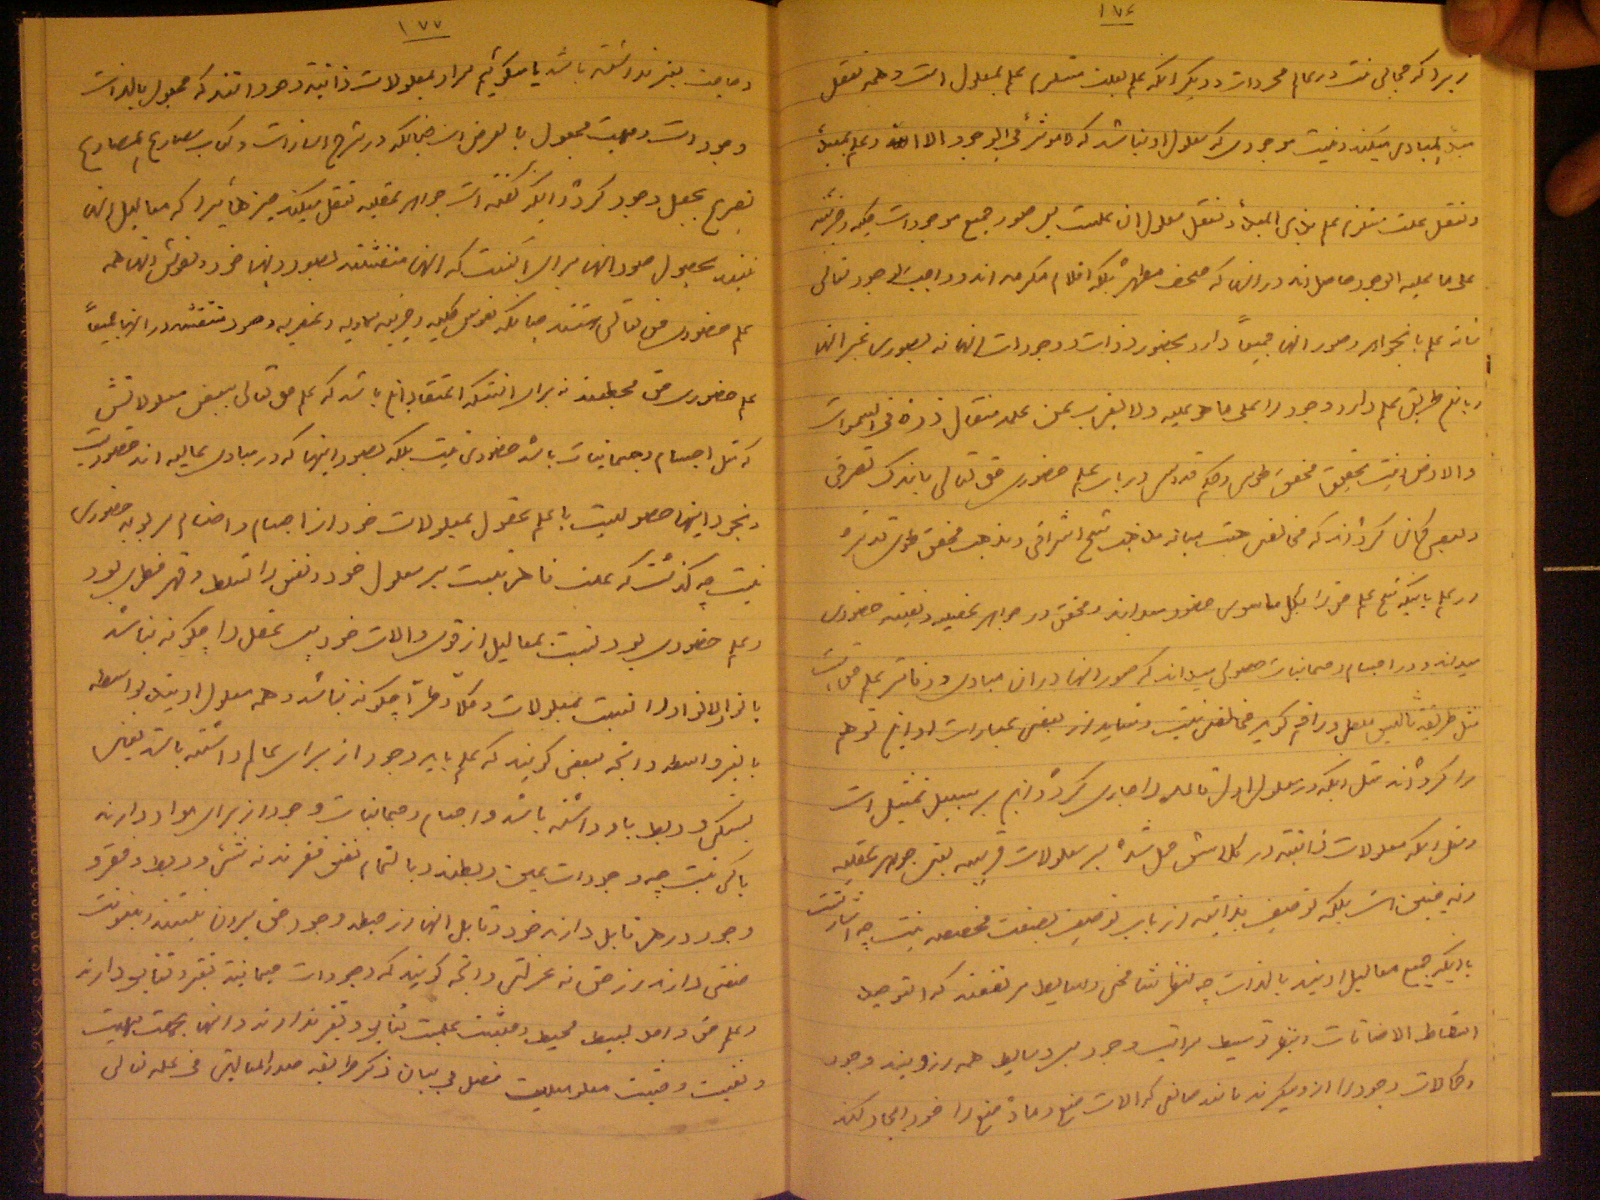 ۱۷۶
زیرا که حجابی نیست در عالم مجردات و دیگر آنکه علم بعلت مستلزم علم بمعلول است و همه تعقل
مبدء المبادی میکنند و نیست موجودی که معلول او نباشد که لا مؤثر فی الوجود الا الله و علم بمبدء
و تعقل علت مستلزم علم بذی المبدء و تعقل معلول آن علت پس صور جمیع موجودات کلیه و جزئیه
علی ما علیه الوجود حاصل اند در آنها که صحف مطهره بلکه اقلام مکرمه اند و واجب الوجود تعالی
شانه علم بآنجواهر و صور آنها جمیعاً دارد بحضور ذوات و وجودات آنها نه بصوری غیر آنها
و باینطریق علم دارد وجود را علی ما هو علیه ولا یعزب عن علمه مثقال ذرة فی السموات
والارض اینست تحقیق محقق طوسی و حکیم قدوسی در باب علم حضوری حق تعالی باندک تصرفی
و بعضی گمان کرده‌اند که مخالفتی هست میانه مذهب شیخ اشراقی و مذهب محقق طوسی قدس سره
در علم باینکه شیخ علم حق را بکل ماسوی حضوری میداند و محقق در جواهر عقلیه و نفسیه حضوری
میداند و در اجسام و جسمانیات حصولی میداند که صور آنها در آن مبادی و دفاتر علم حق است
مثل طریقه ثالیس ملطی و راقم گوید مخالفتی نیست و شاید از بعضی عبارات او این توهم
را کرده‌اند مثل آنکه در معلول اول قاعده را جاری کرده و این بر سبیل تمثیل است
و مثل آنکه معلولات ذاتیه در کلامش حمل شده بر معلولات قریبه یعنی جواهر عقلیه
و نه چنین است بلکه توصیف بذاتیه از باب توصیف بصفت مخصصه نیست چه اشارتست
بآنکه جمیع معالیل اویند بالذات چه بنظر شامخی وسایط مرتفعند که التوحید
اسقاط الاضافات و بنظر توسیط مراتب وجود پس وسایط همه از اویند وجود
و کمالات وجود را از او میگیرند مانند صانعی که آلات صنع و ماده صنع را خود ایجاد کند
۱۷۷
و حاجت بغیر نداشته باشد یا میگوئیم مراد بمعلولات ذاتیه وجوداتند که مجعول بالذات
وجود است و مهیت مجعول بالعرض است چنانکه در شرح اشارات و کتاب مصارع المصارع
تصریح بجعل وجود کرده و آنکه گفته است جواهر عقلیه تعقل میکنند چیزهائیرا که معالیل آنها
نیستند بحصول صور آنها برای آنست که آنها منتقشند بصور و آنها خود و نقوش آنها همه
علم حضوری حق تعالی هستند چنانکه نفوس کلیه و جزئیه سماویه و عنصریه و صور منتقشه در آنها جمیعاً
علم حضوری حق محیطند نه برای اینکه اعتقاد این باشد که علم حق تعالی ببعض معلولاتش
که مثل اجسام و جسمانیات باشد حضوری نیست بلکه بصور اینها که در مبادی عالیه اند حضوریست
و بخود اینها حصولیست یا علم عقول بمعلولات خود از اجسام و اصنام مربوبه حضوری
نیست چه گذشت که علت فاعلی نیست بر معلول خود و نفس را تسلط و قهر فعلی بود
و علم حضوری بود نسبت بمعالیل از قوی و آلات خود پس عقل را چگونه نباشد
یا نور الانوار را نسبت بمعلولات و کلاً و طراً چگونه نباشد و همه معلول اویند بواسطه
یا بغیر واسطه و آنچه بعضی گویند که علم باید وجود از برای عالم داشته باشد یعنی
بستگی و ربط باو داشته باشد و اجسام و جسمانیات وجود از برای مواد دارند
باکی نیست چه وجودات عین ربطند و بالتمام نفس فقرند نه شیء و ربط و فقر و
وجود در هر قابل دارند خود و قابل آنها از حیطه وجود حق بیرون نیستند و بینونت
صفتی دارند از حق نه عزلتی و آنچه گویند که وجودات جسمانیه تغیر و تشابک دارند
و علم حق واحد بسیط محیط و حیثیت علمیت تشابک و تغیر ندارند و آنها بجهت مهیت
و نفسیت و حیثیت معلومیت فصل فی بیان ذکر طریقه صدر المتألهین فی علمه تعالی